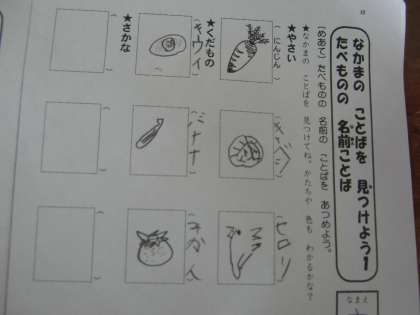 なまえ
なかまの ことばを 見つけよう1
たべものの 名前ことば
(めあて) たべものの 名前の ことばを あつめよう。
★なかまの ことばを 見つけてね。かたちや 色も わかるかな?
★やさい
(にんじん)
キャベツ
★くだもの
バナナ
みかん
★さかな